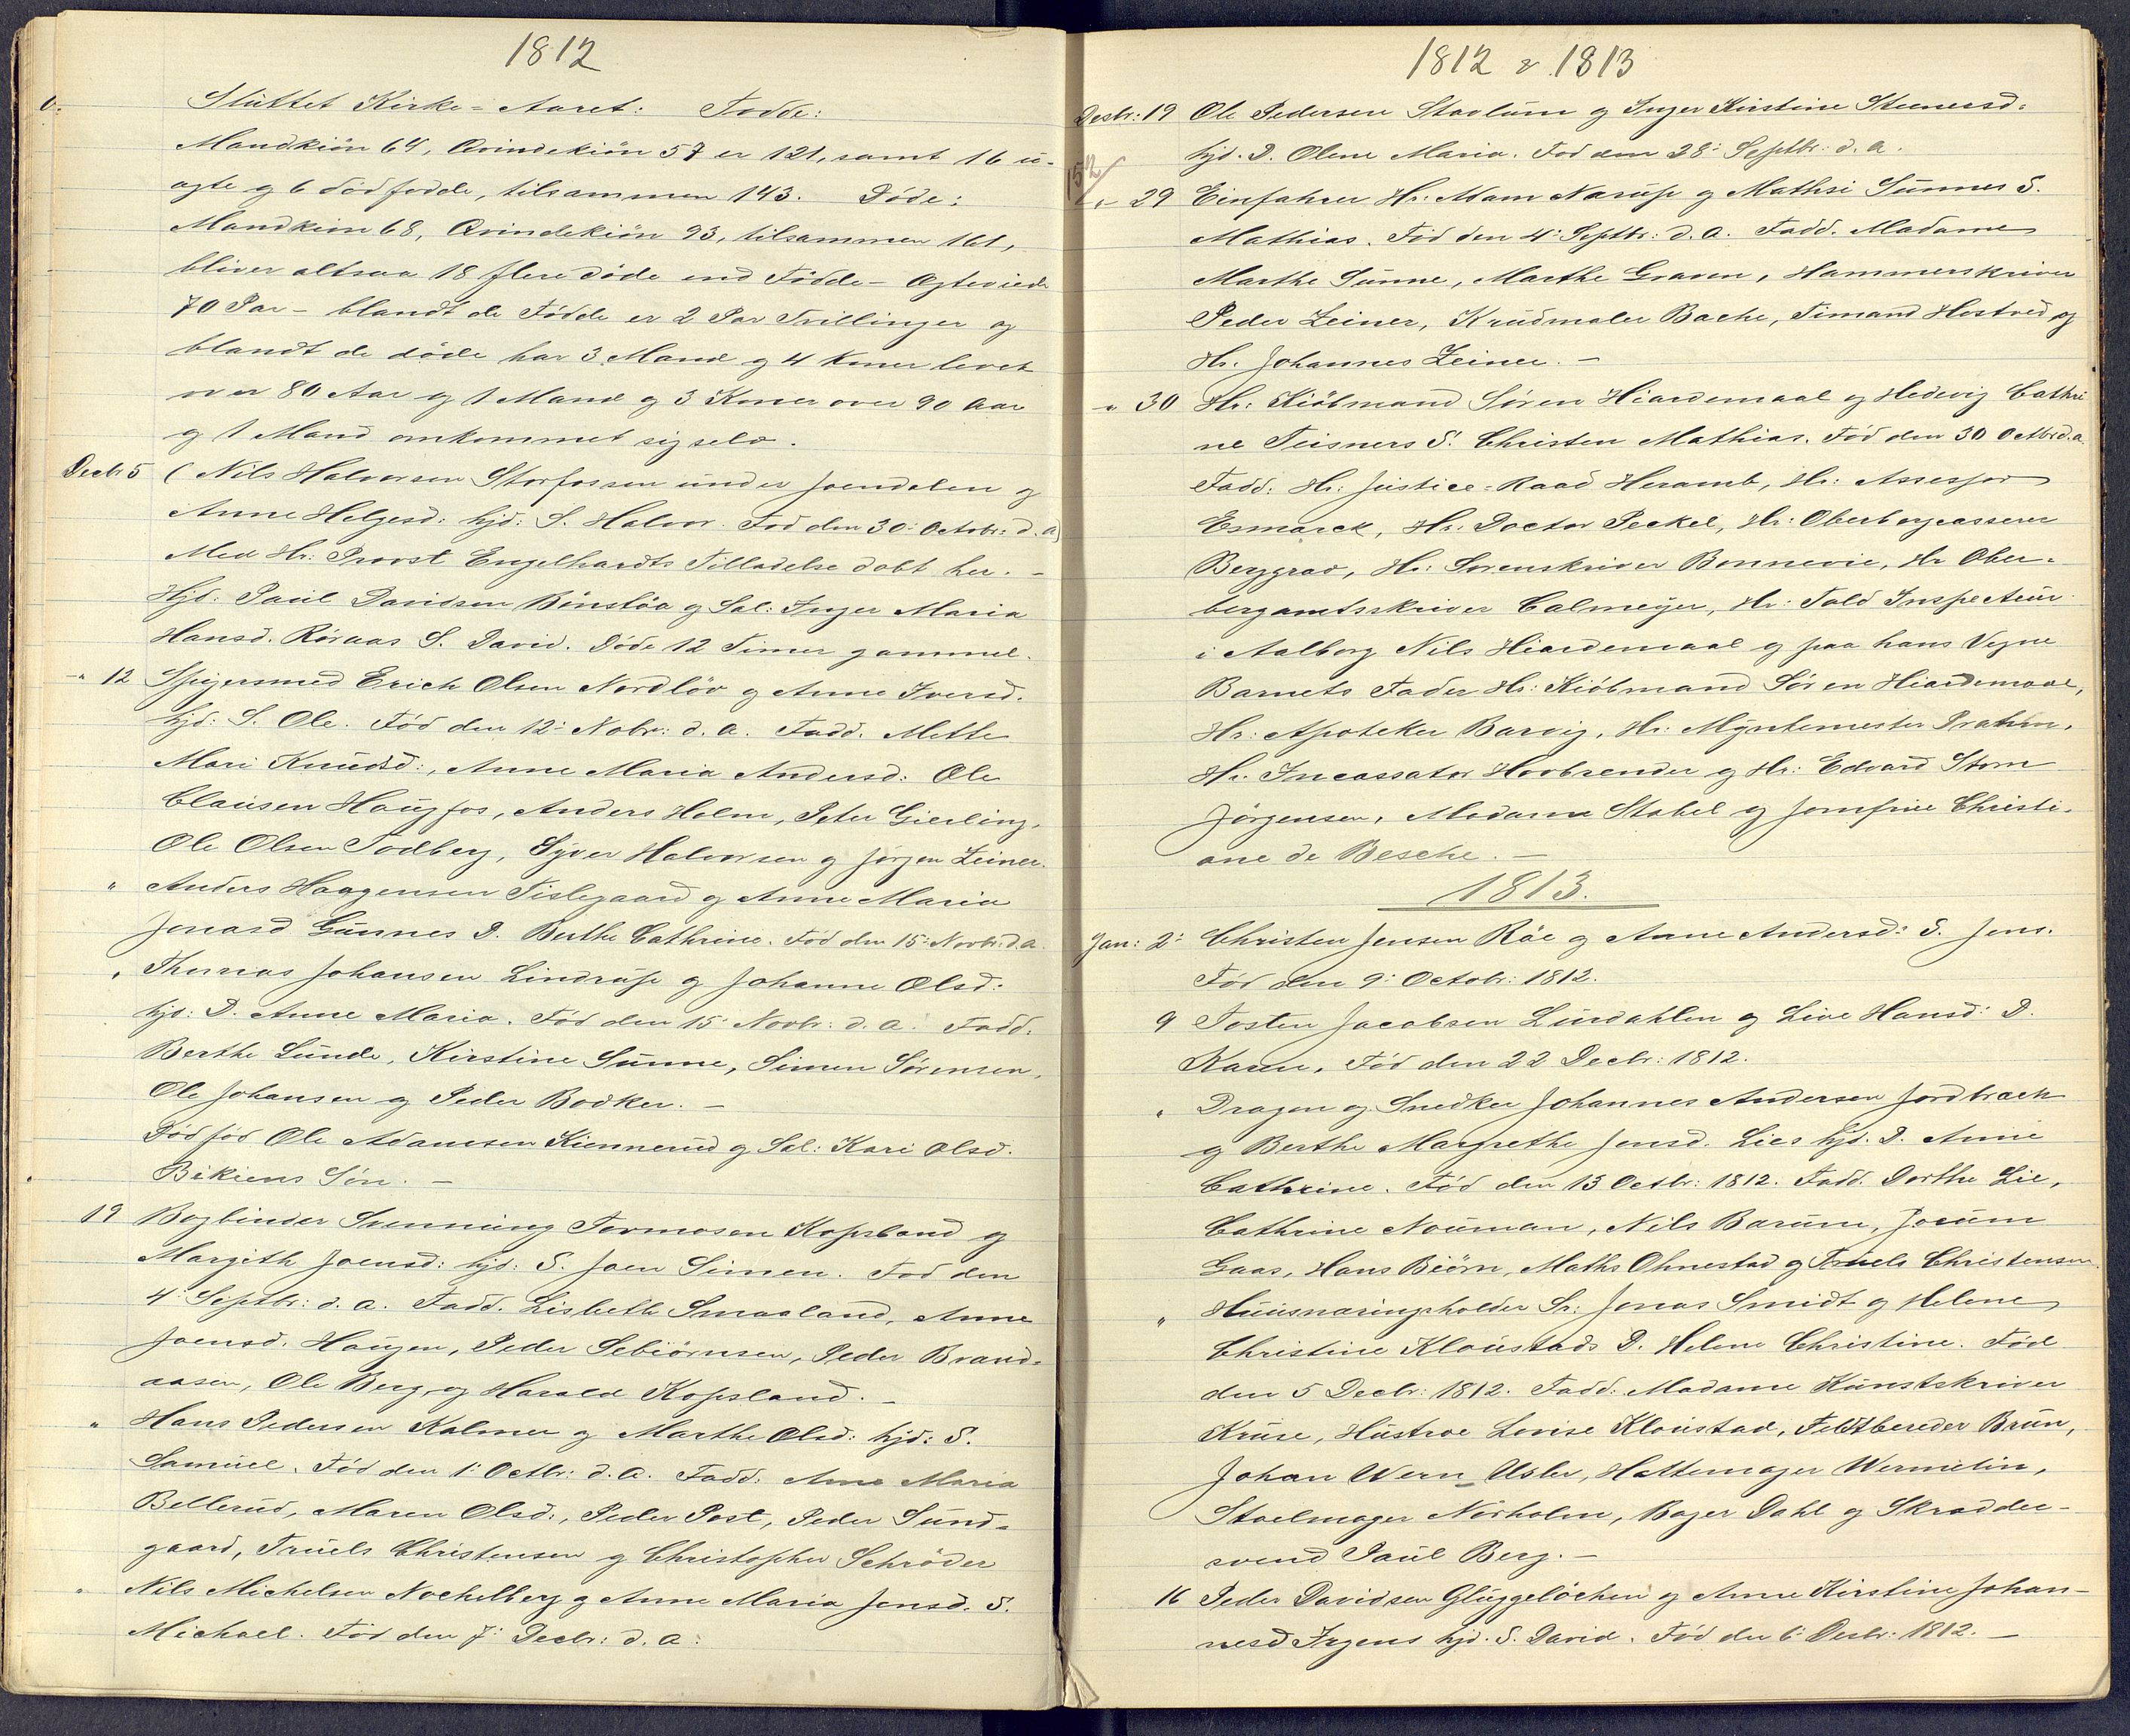 1812
Sluttet Kirke-Aaret: Fødde:
Mandkiön 64, Qvindekiön 57 er 121, samt 16 ü-
ægte og 6 dödfødde, tilsammen 143. Döde:
Mandkiön 68, Qvindekiön 93, tilsammen 161,
bliver altsaa 18 flere döde end Födde - Ægteviede
70 Par - blandt de Födde er 2 Par Tvillinger og
blandt de döde har 3 Mænd og 4 Koner levet
over 80 Aar og 1 Mand og 3 Koner over 90 Aar
og 1 Mand omkommet sig selv.
Decb 5 (Nils Halvorsen Storfossen ünder Joendalen og
Anne Helgesd: hjd: S. Halvor. Fød den 30: Octobr: d. a)
Med Hr: Provst Engelhardts Tilladelse döbt her. -
Hjd: Paül Davidsen Bönslöa og Sal: Inger Maria
Hansd. Röraas S. David. Döde 12 Timer gammel.
-" 12 Spigersmed Erich Olsen Nordlöv og Anne Iversd.
hjd: S. Ole. Föd den 12: Nobr: d. a. Fadd. Mette
Mari Knüdsd:, Anne Maria Andersd: Ole
Claüsen Haügfos, Anders Holm, Peter Gierling,
Ole Olsen Todberg, Syver Halvorsen og Jörgen Zeiner.
" Anders Haagensen Tislegaard og Anne Maria
Jonasd Günnes D. Berthe Cathrine. Föd den 15: Novbr: d. a.
" Thomas Johansen Lindrüse og Johanne Olsd:
hjd: D. Anne Maria. Föd den 15: Novbr: d. a. Fadd.
Berthe Lünde, Kirstine Sünne, Simen Sörensen,
Ole Johansen og Peder Bødker. -
Dödföd Ole Adamsen Kiennerüd og Sal: Kari Olsd.
Bekiens Sön. -
19 Bogbinder Svenning Tormosen Kopsland og
Margith Joensd: hjd: S. Joen Simen. Fød den
4: Septbr: d. a. Fadd. Lisbeth Smaaland, Anne
Joensd. Haügen, Peder Sebiörnsen, Peder Brand-
aasen, Ole Berg, og Harald Kopsland. -
" Hans Pedersen Kalmer og Marthe Olsd: hjd: S.
Samüel. Föd den 1: Octbr: d. a. Fadd: Anne Maria
Bellerüd, Maren Olsd:, Peder Post, Peder Sünd-
gaard, Trüels Christensen og Christopher Schröder
" Nils Michelsen Nochelberg og Anne Maria Jensd. S.
Michael. Föd den 7: Decbr: d. a:
1812 & 1813
Desbr: 19 Ole Pedersen Stavlüm og Inger Kirstine Steenersd:
hjd. D. Olene Maria. Fød den 28: Septbr: d. a.
" 29 Einfahrer Hr: Adam Narüse og Mathsi Sünnes S.
Mathias. Föd den 4: Septbr: d. a. Fadd. Madame
Marthe Sünne, Marthe Graven, Hammerskriver
Peder Zeiner, Krüdmaler Bache, Timand Hostved og
Hr. Johannes Zeiner. -
" 30 Hr: Kiöbmand Sören Hiardemaal og Hedevig Cathri
ne Teisners S. Christen Mathias. Föd den 30 Octbr d. a.
Fadd: Hr: Jüstice-Raad Heramb, Hr: Assessor
Esmarck, Hr. Doctor Peckel, Hr: Oberbergcasserer
Berggrav, Hr: Sorenskriver Bonnevie, Hr Ober-
bergamtsskriver Calmeyer, Hr: Told Inspecteür
i Aalborg Nils Hiardemaal og paa hans Vegne
Barnets Fader Hr: Kiöbmand Sören Hiardemaal,
Hr: Apoteker Barvig, Hr: Myntemester Prahm,
Hr. Incassator Hovbrender og Hr: Edvard Storm
Jörgensen, Madame Stabel og Jomfrue Christi-
ane de Besche. -
1813.
Jan: 2: Christen Jensen Röe og Anne Andersd: S. Jens.
Föd den 9: Octobr: 1812.
9 Tosten Jacobsen Lürdahlen og Live Hansd: D.
Karen, Föd den 22 Decbr: 1812.
" Dragon og Snedker Johannes Andersen Jordbræk
og Berthe Margrethe Jensd. Lies hjd. D. Anne
Cathrine. Föd den 13 Octbr: 1812. Fadd. Dorthe Lie,
Cathrine Noüman, Nils Barüm, Jocüm
Gaas, Hans Biörn, Maths Ohnestad og Trüels Christensen.
" Hüüsnæringsholder Sr: Jonas Smidt og Helene
Christine Kloüstads D. Helene Christine. Föd
den 5 Decbr: 1812. Fadd: Madame Künstskriver
Krüse, Hüstroe Lovise Kloüstad, Feldtbereder Brün,
Johan Wern Usler, Hattemager Wermelin,
Stoelmager Nörholm, Bager Dahl og Skrædder-
svend Paül Berg. -
16 Peder Davidsen Glüggelöchen og Anne Kirstine Johan-
nesd Irgens hjd. S. David. Föd den 6: Decbr: 1812. -